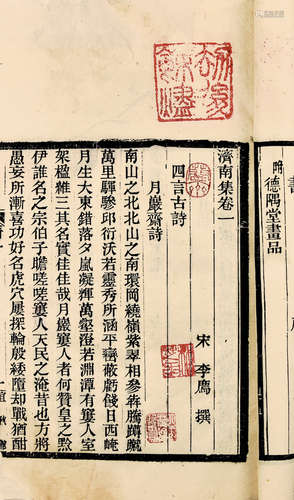 劫後餘燼
附 德隅堂畫品
濟南集卷一
宋 李廌 撰
四言古詩
月巖齋詩
南山之北北山之南環岡繞嶺紫翠相參犇騰
萬里驛驂邱衍沃若靈秀所涵平巒蔽虧日西崦
月生大東錯落夕嵐凝輝萬壑澄若淵潭有窶人室
架楹雜三其名實佳佳哉月巖窶人者何贊皇之
伊誰名之宗伯子瞻嗟嗟窶人天民之淹昔也方將
愚妄所漸喜功好名虎穴屢探輪般綏墮却戰猶酣